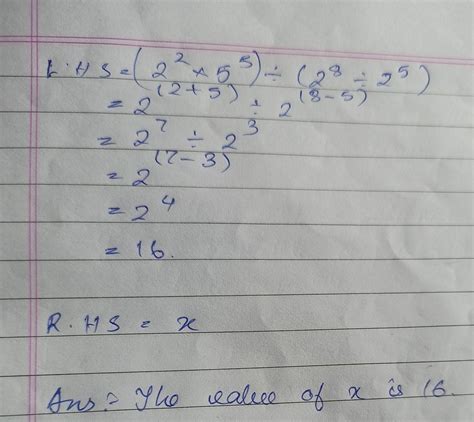 L.HS = (2² × 5⁵) ÷ (2⁸ ÷ 2⁵)
= 2⁽²⁺⁵⁾ ÷ 2⁽⁸⁻⁵⁾
= 2⁷ ÷ 2³
= 2⁽⁷⁻³⁾
= 2⁴
= 16.
R.HS = x
Ans:- The value of x is 16.